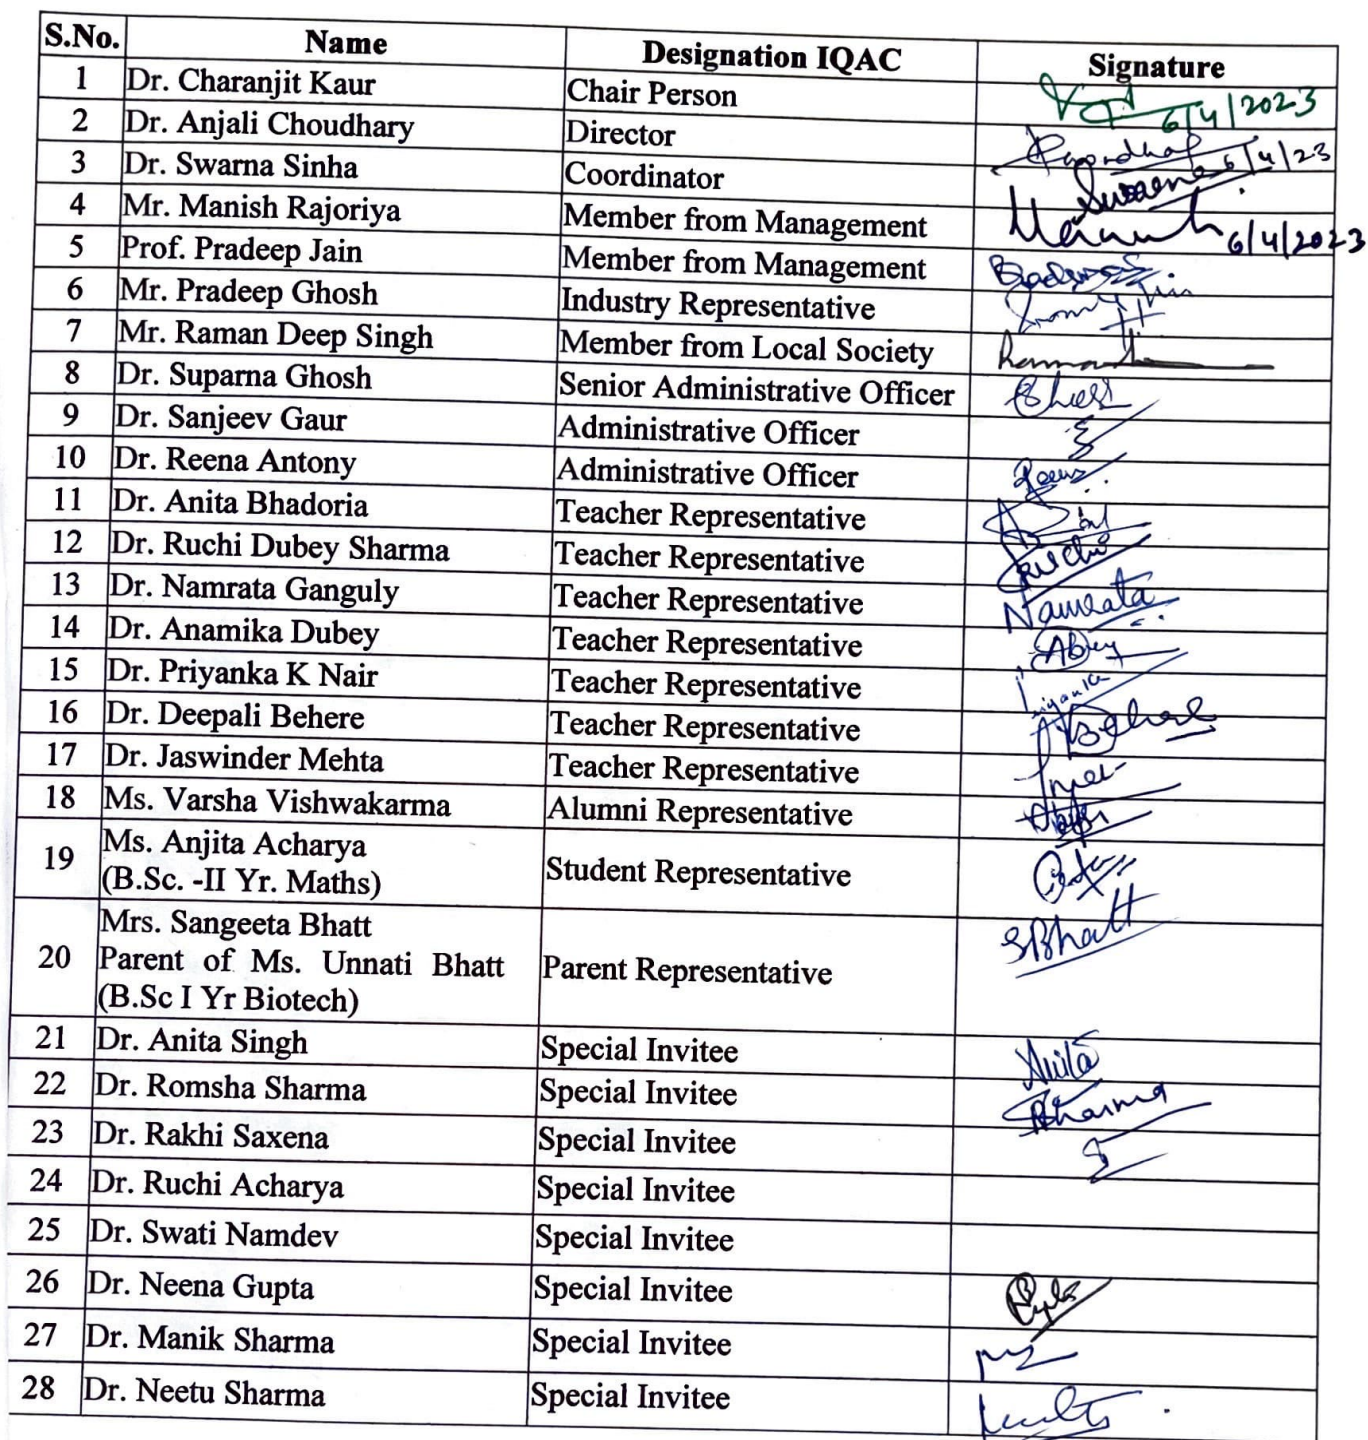 S.No. Name Designation IQAC Signature
1 Dr. Charanjit Kaur Chair Person 6/4/2023
2 Dr. Anjali Choudhary Director 6/4/23
3 Dr. Swarna Sinha Coordinator
4 Mr. Manish Rajoriya Member from Management 6/4/2023
5 Prof. Pradeep Jain Member from Management
6 Mr. Pradeep Ghosh Industry Representative
7 Mr. Raman Deep Singh Member from Local Society
8 Dr. Suparna Ghosh Senior Administrative Officer
9 Dr. Sanjeev Gaur Administrative Officer
10 Dr. Reena Antony Administrative Officer
11 Dr. Anita Bhadoria Teacher Representative
12 Dr. Ruchi Dubey Sharma Teacher Representative Ruchi
13 Dr. Namrata Ganguly Teacher Representative Namrata
14 Dr. Anamika Dubey Teacher Representative
15 Dr. Priyanka K Nair Teacher Representative Priyanka
16 Dr. Deepali Behere Teacher Representative
17 Dr. Jaswinder Mehta Teacher Representative
18 Ms. Varsha Vishwakarma Alumni Representative
19 Ms. Anjita Acharya
(B.Sc. -II Yr. Maths) Student Representative
20 Mrs. Sangeeta Bhatt
Parent of Ms. Unnati Bhatt
(B.Sc I Yr Biotech) Parent Representative SBhatt
21 Dr. Anita Singh Special Invitee Anita
22 Dr. Romsha Sharma Special Invitee RSharma
23 Dr. Rakhi Saxena Special Invitee
24 Dr. Ruchi Acharya Special Invitee
25 Dr. Swati Namdev Special Invitee
26 Dr. Neena Gupta Special Invitee
27 Dr. Manik Sharma Special Invitee
28 Dr. Neetu Sharma Special Invitee